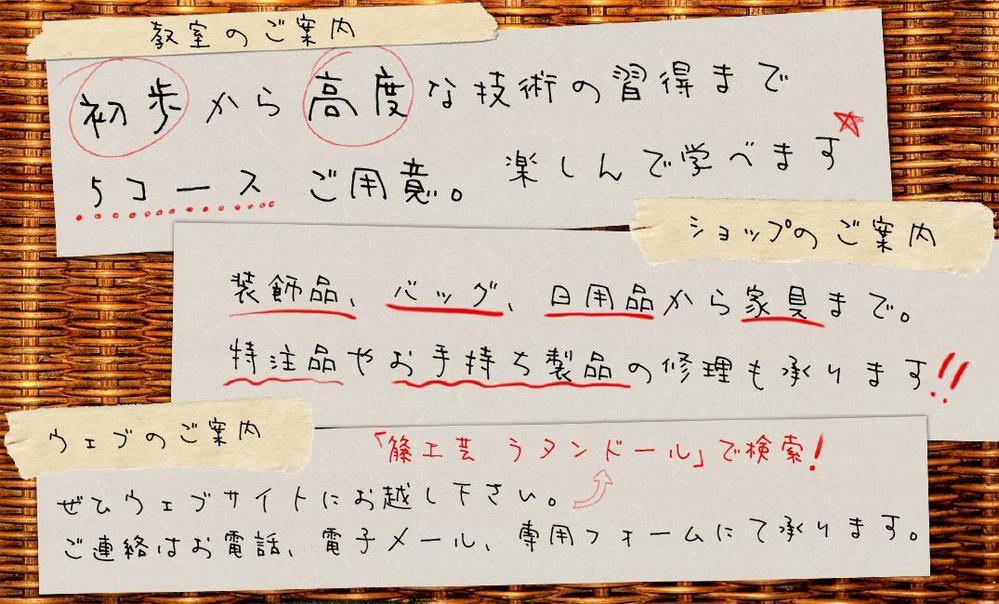 教室のご案内
初歩から高度な技術の習得まで
5コースご用意。 楽しんで学べます☆
ショップのご案内
装飾品、バッグ、日用品から家具まで。
特注品やお手持ち製品の修理も承ります!!
ウェブのご案内
「籐工芸 ラタンドール」で検索!
ぜひウェブサイトにお越し下さい。
ご連絡はお電話、電子メール、専用フォームにて承ります。